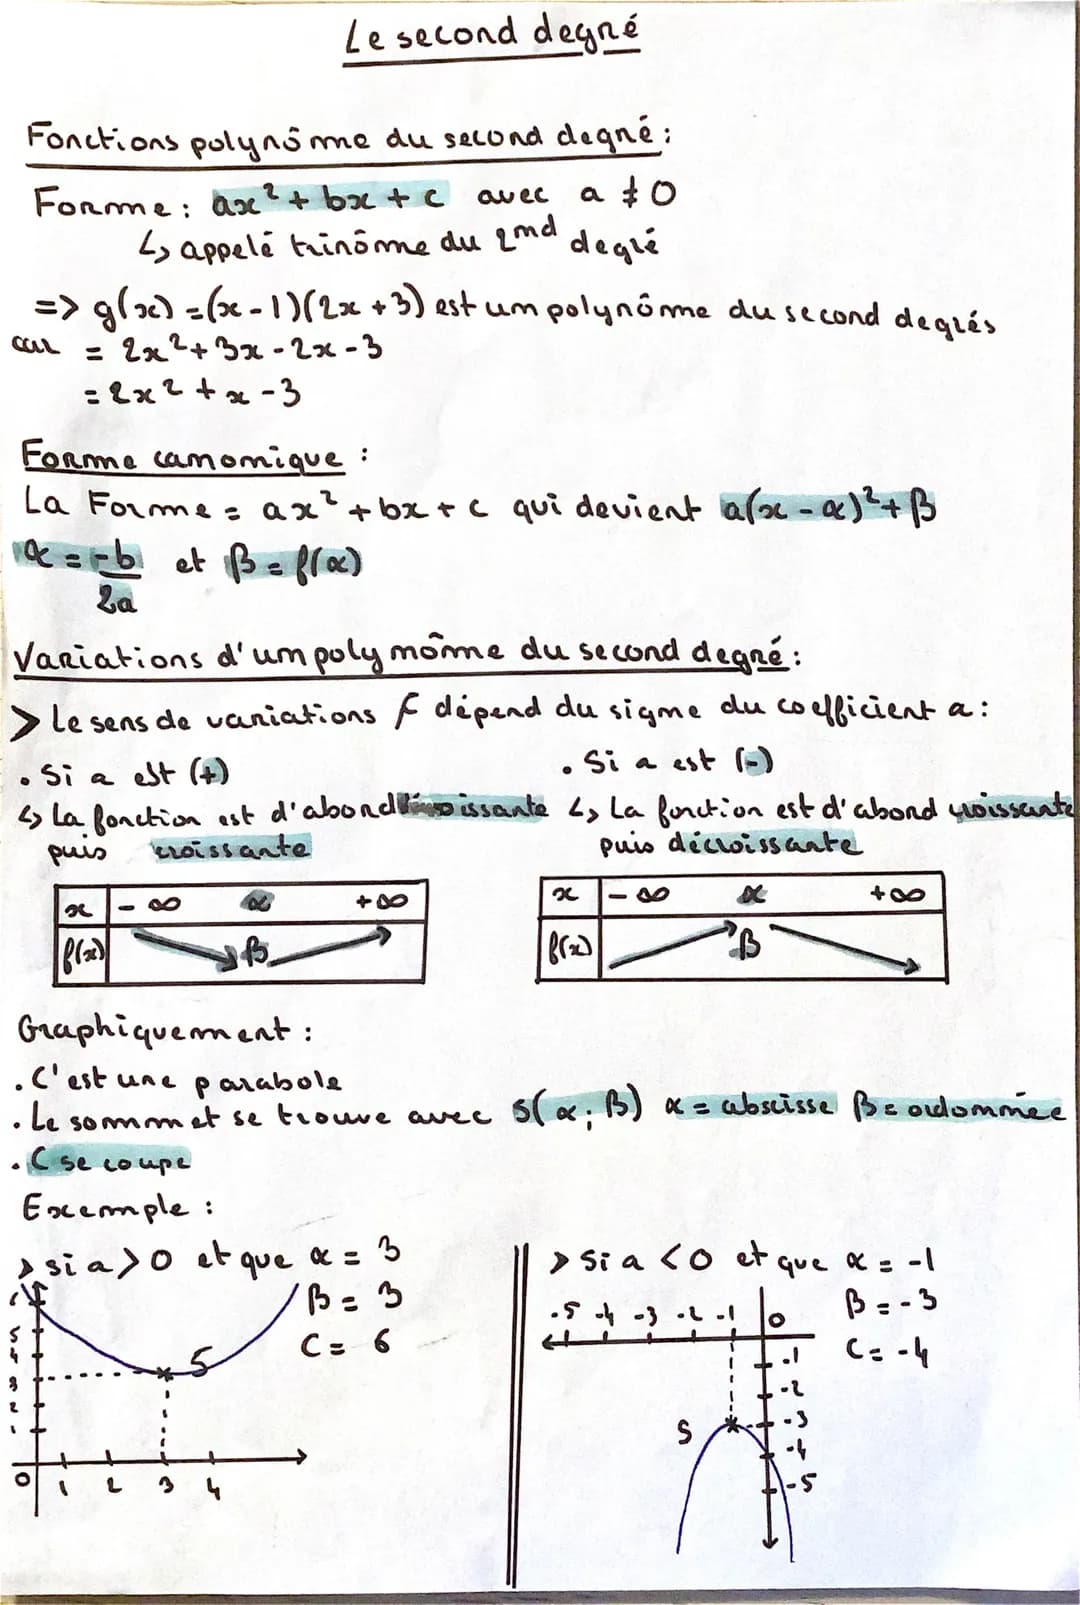 Le second degré
Fonctions polynôme du second degré :
Forme : ax² + bx + c avec a ≠ 0
↳ appelé trinôme du 2nd degré
=> g(x) = (x - 1)(2x + 3) est un polynôme du second degrés
car = 2x² + 3x - 2x - 3
= 2x² + x - 3
Forme canonique :
La Forme = ax² + bx + c qui devient a(x - α)² + β
α = -b/2a et β = f(α)
Variations d'un polynôme du second degré :
> Le sens de variations f dépend du signe du coefficient a :
• Si a est (+)
↳ La fonction est d'abord
puis croissante
x | -∞ α +∞
f(x) | β
• Si a est (-)
↳ La fonction est d'abord croissante
puis décroissante
x | -∞ α +∞
f(x) | β
Graphiquement :
• C'est une parabole
• Le sommet se trouve avec S(α ; β) α = abscisse β = ordonnée
• C se coupe
Exemple :
> si a > 0 et que α = 3
β = 3
C = 6
S
5
4
3
2
1
0 1 2 3 4
> Si a < 0 et que α = -1
β = -3
C = -4
-5 -4 -3 -2 -1 0
-1
-2
-3
-4
-5
S